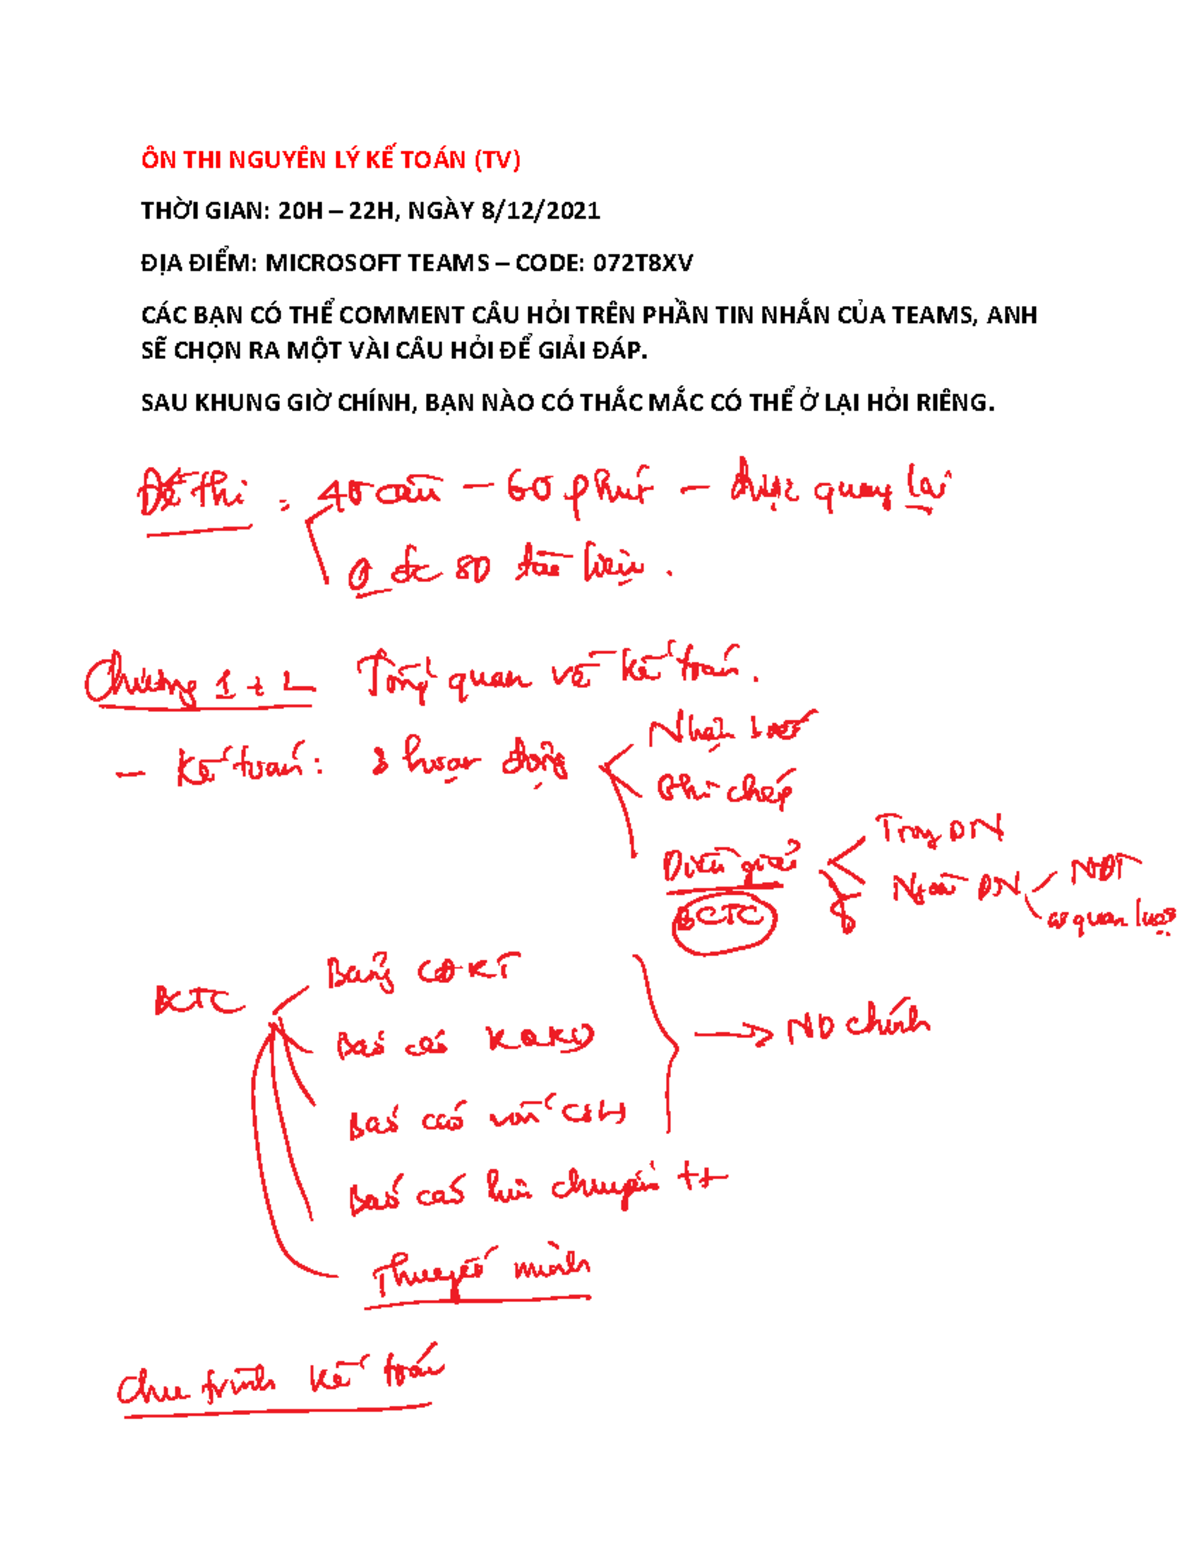 ÔN THI NGUYÊN LÝ KẾ TOÁN (TV)
THỜI GIAN: 20H – 22H, NGÀY 8/12/2021
ĐỊA ĐIỂM: MICROSOFT TEAMS – CODE: 072T8XV
CÁC BẠN CÓ THỂ COMMENT CÂU HỎI TRÊN PHẦN TIN NHẮN CỦA TEAMS, ANH
SẼ CHỌN RA MỘT VÀI CÂU HỎI ĐỂ GIẢI ĐÁP.
SAU KHUNG GIỜ CHÍNH, BẠN NÀO CÓ THẮC MẮC CÓ THỂ Ở LẠI HỎI RIÊNG.
Đề thi : 40 câu – 60 phút – được quay lại
0 đc SD tài liệu .
Chương 1 + 2 Tổng quan về kế toán.
– Kế toán: 3 hoạt động
Nhận biết
Ghi chép
Diễn giải
Trong DN
Ngoài DN
NĐT
cơ quan
BCTC
BCTC
Bảng CĐKT
Báo cáo KQKD
→ ND chính
Báo cáo vốn CSH
Báo cáo lưu chuyển tt
Thuyết minh
Chu trình kế toán